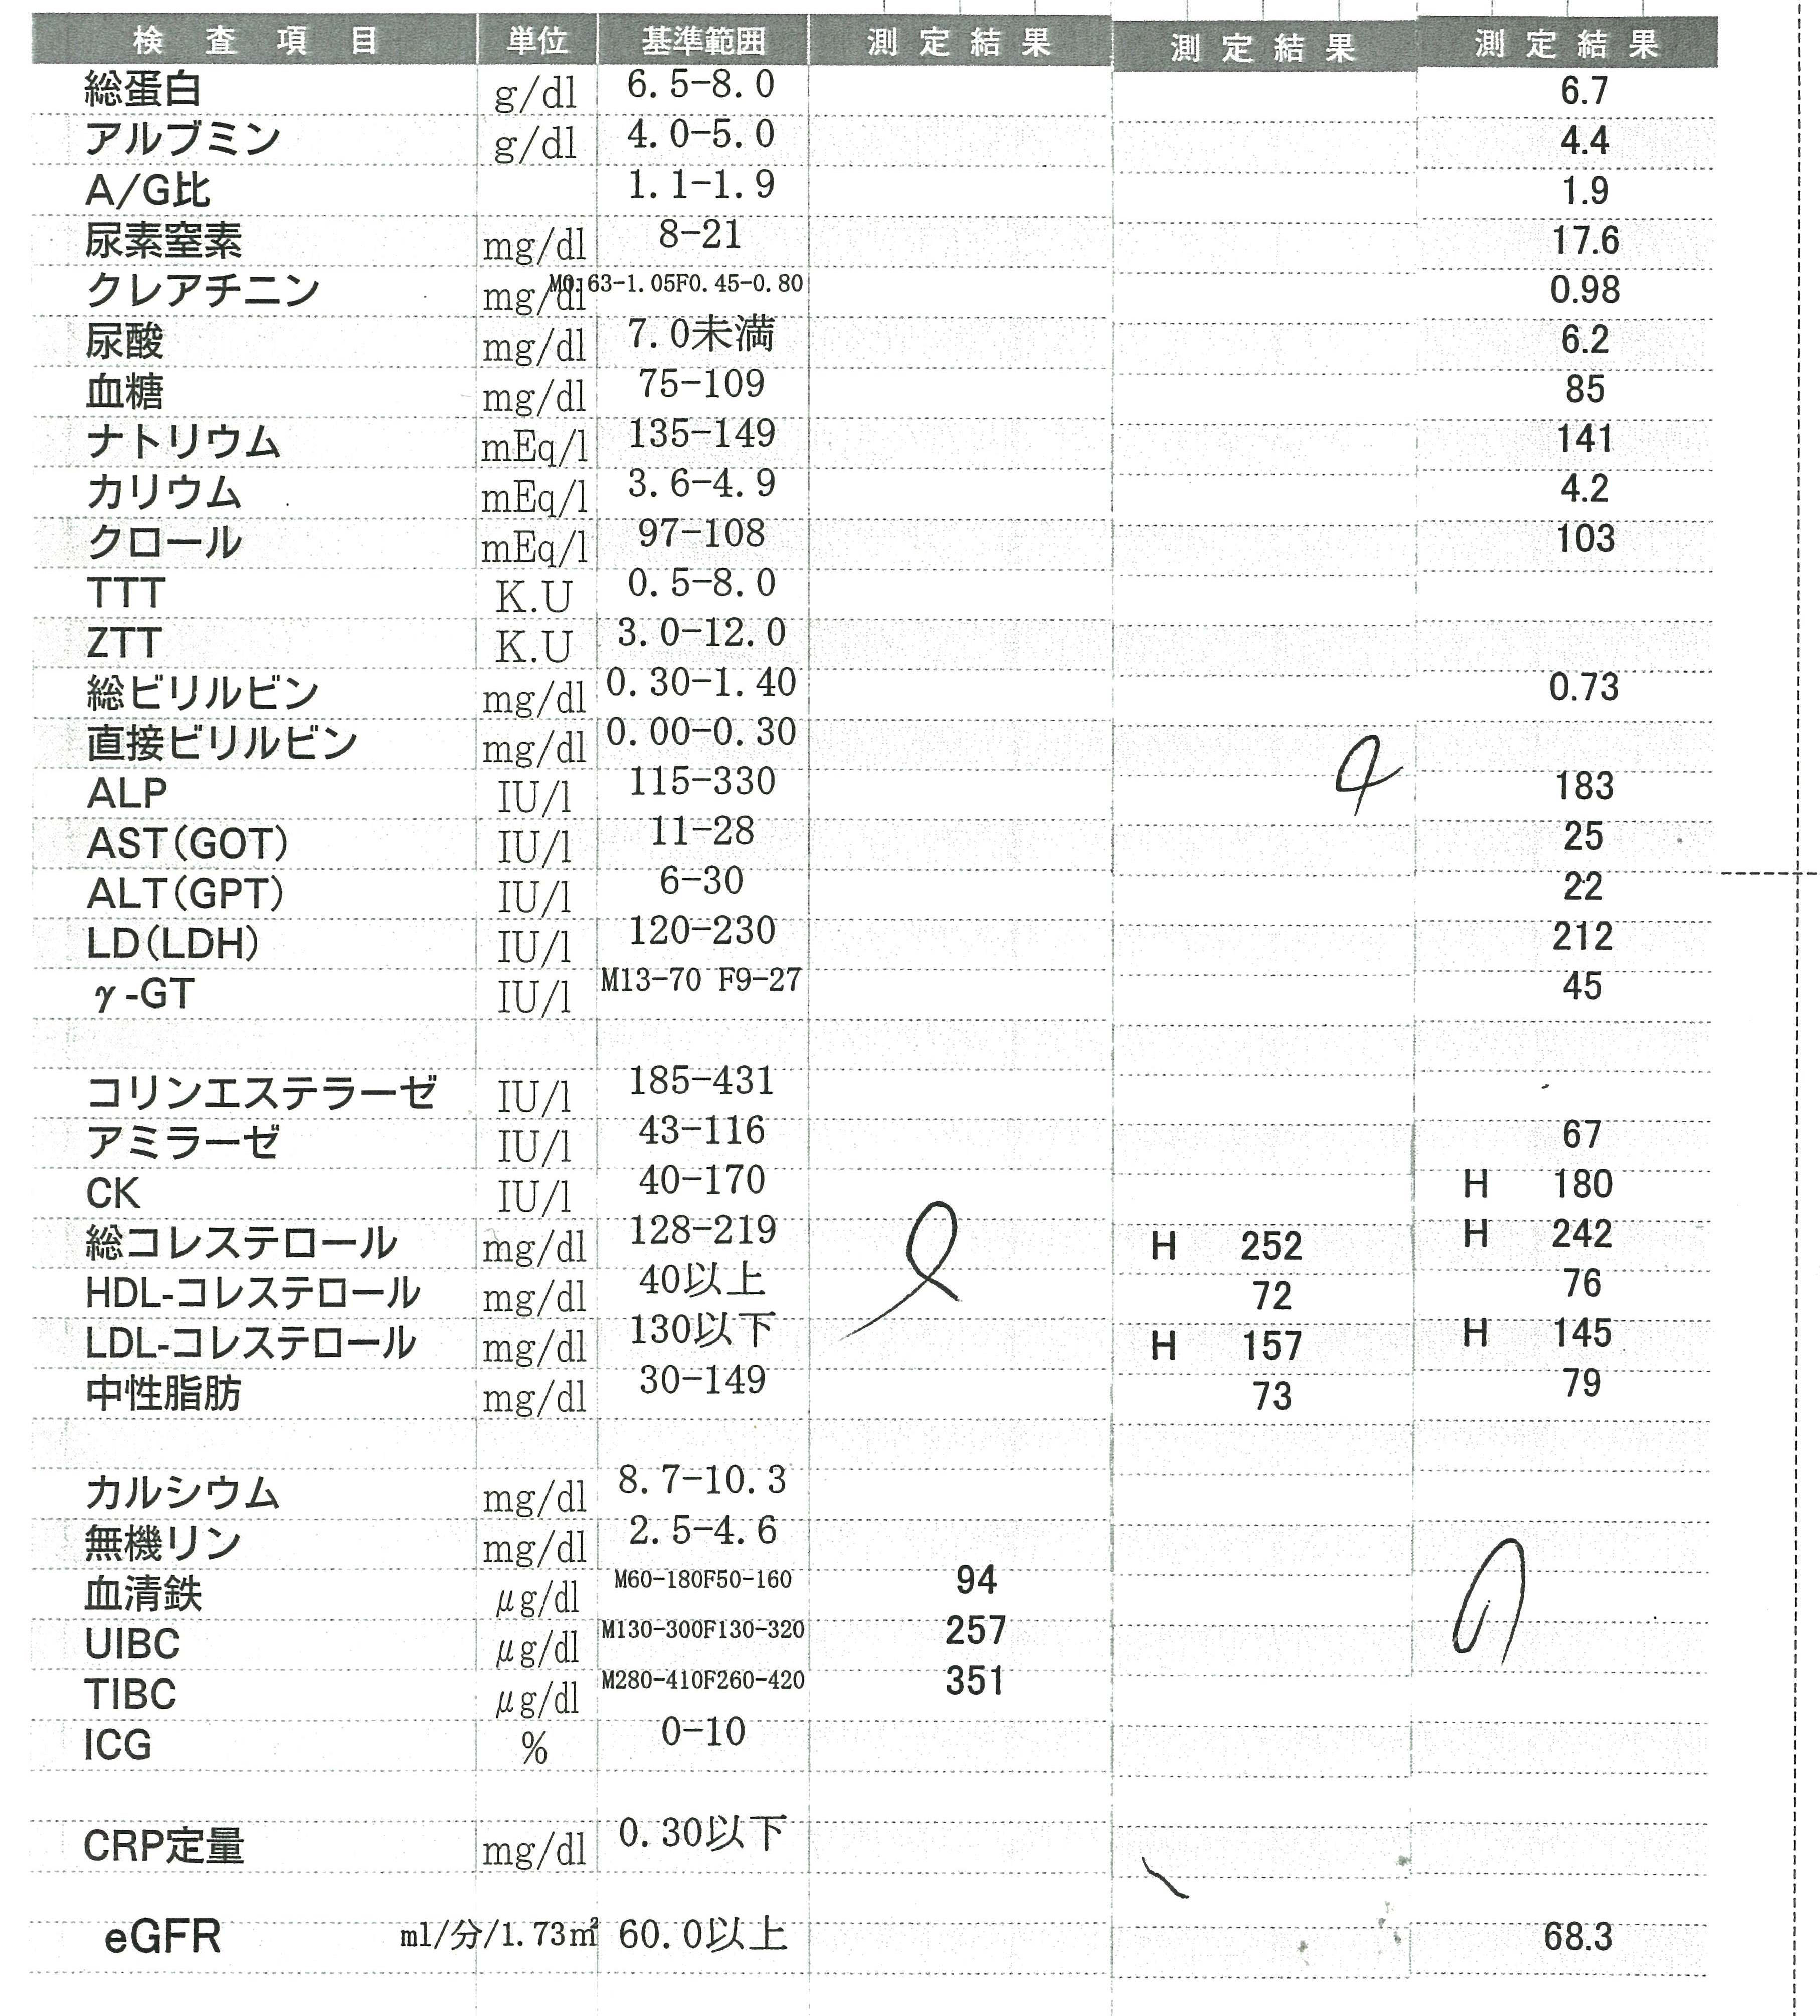 検査項目 単位 基準範囲 測定結果 測定結果 測定結果
総蛋白 g/dl 6.5-8.0 6.7
アルブミン g/dl 4.0-5.0 4.4
A/G比 1.1-1.9 1.9
尿素窒素 mg/dl 8-21 17.6
クレアチニン mg/dl M0.63-1.05F0.45-0.80 0.98
尿酸 mg/dl 7.0未満 6.2
血糖 mg/dl 75-109 85
ナトリウム mEq/l 135-149 141
カリウム mEq/l 3.6-4.9 4.2
クロール mEq/l 97-108 103
TTT K.U 0.5-8.0
ZTT K.U 3.0-12.0
総ビリルビン mg/dl 0.30-1.40 0.73
直接ビリルビン mg/dl 0.00-0.30
ALP IU/l 115-330 183
AST(GOT) IU/l 11-28 25
ALT(GPT) IU/l 6-30 22
LD(LDH) IU/l 120-230 212
γ-GT IU/l M13-70 F9-27 45
コリンエステラーゼ IU/l 185-431
アミラーゼ IU/l 43-116 67
CK IU/l 40-170 H 180
総コレステロール mg/dl 128-219 H 252 H 242
HDL-コレステロール mg/dl 40以上 72 76
LDL-コレステロール mg/dl 130以下 H 157 H 145
中性脂肪 mg/dl 30-149 73 79
カルシウム mg/dl 8.7-10.3
無機リン mg/dl 2.5-4.6
血清鉄 μg/dl M60-180F50-160 94
UIBC μg/dl M130-300F130-320 257
TIBC μg/dl M280-410F260-420 351
ICG % 0-10
CRP定量 mg/dl 0.30以下
eGFR ml/分/1.73㎡ 60.0以上 68.3